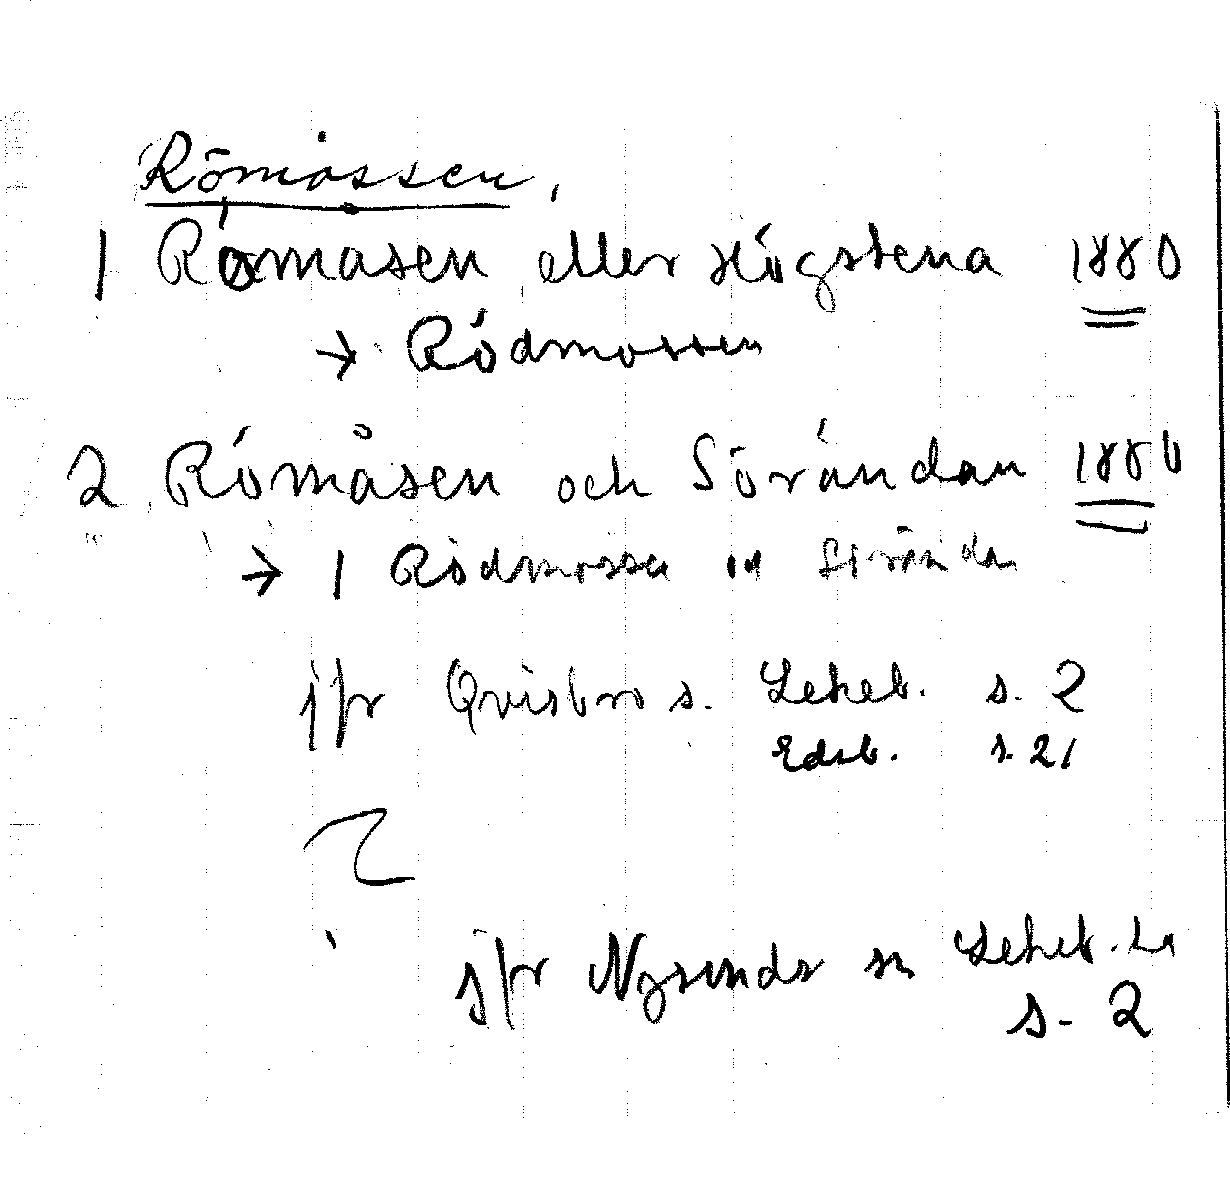 Römossen.
1 Römåsen eller Högstena 1880
→ Rödmossen
2 Römåsen och Sörändan 1880
→ 1 Rödmossen
jfr Qvisbro s. Lekeb. s. 2
Edsb. s. 21
jfr Nysunds sn Lekeb. La
s. 2